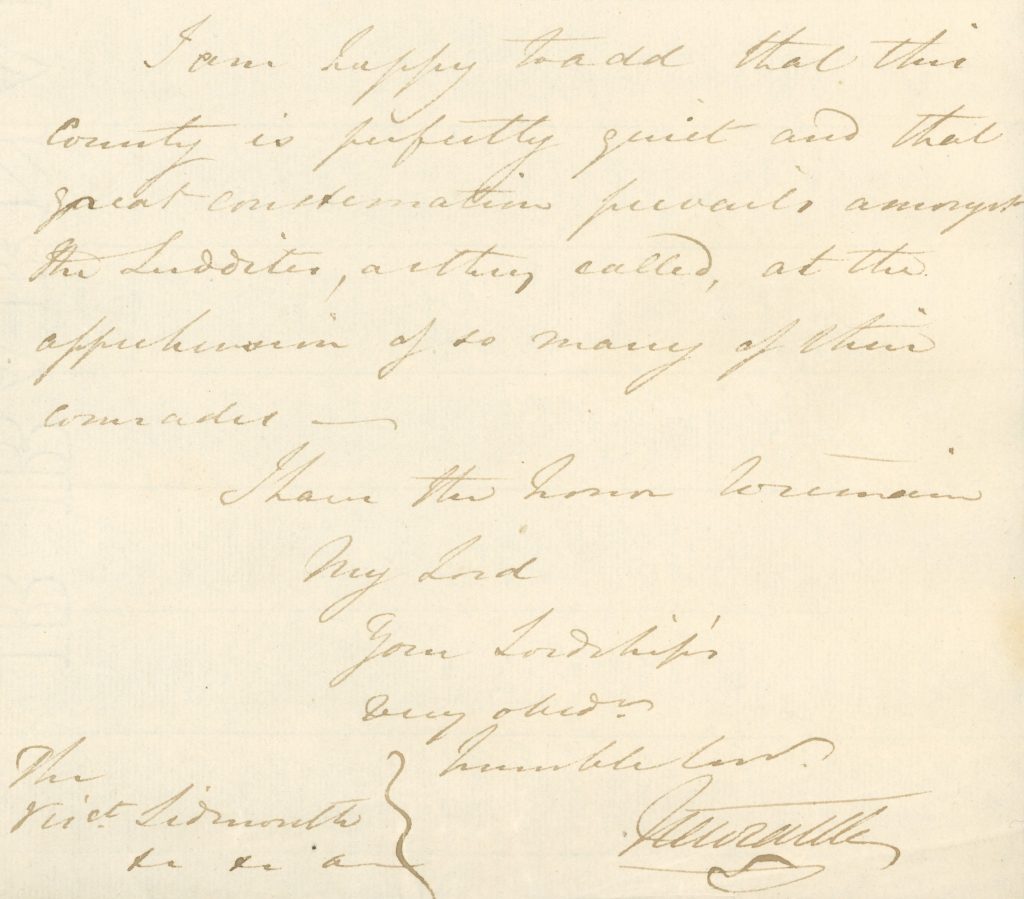 I am happy to add that this
County is perfectly quiet and that
great consternation prevails amongst
the Luddites, as they called, at the
apprehension of so many of their
comrades —
I have the honor to remain
My Lord
Your Lordship's
very obedt
humble serv.
Newcastle
The
Visct. Sidmouth
&c &c &c